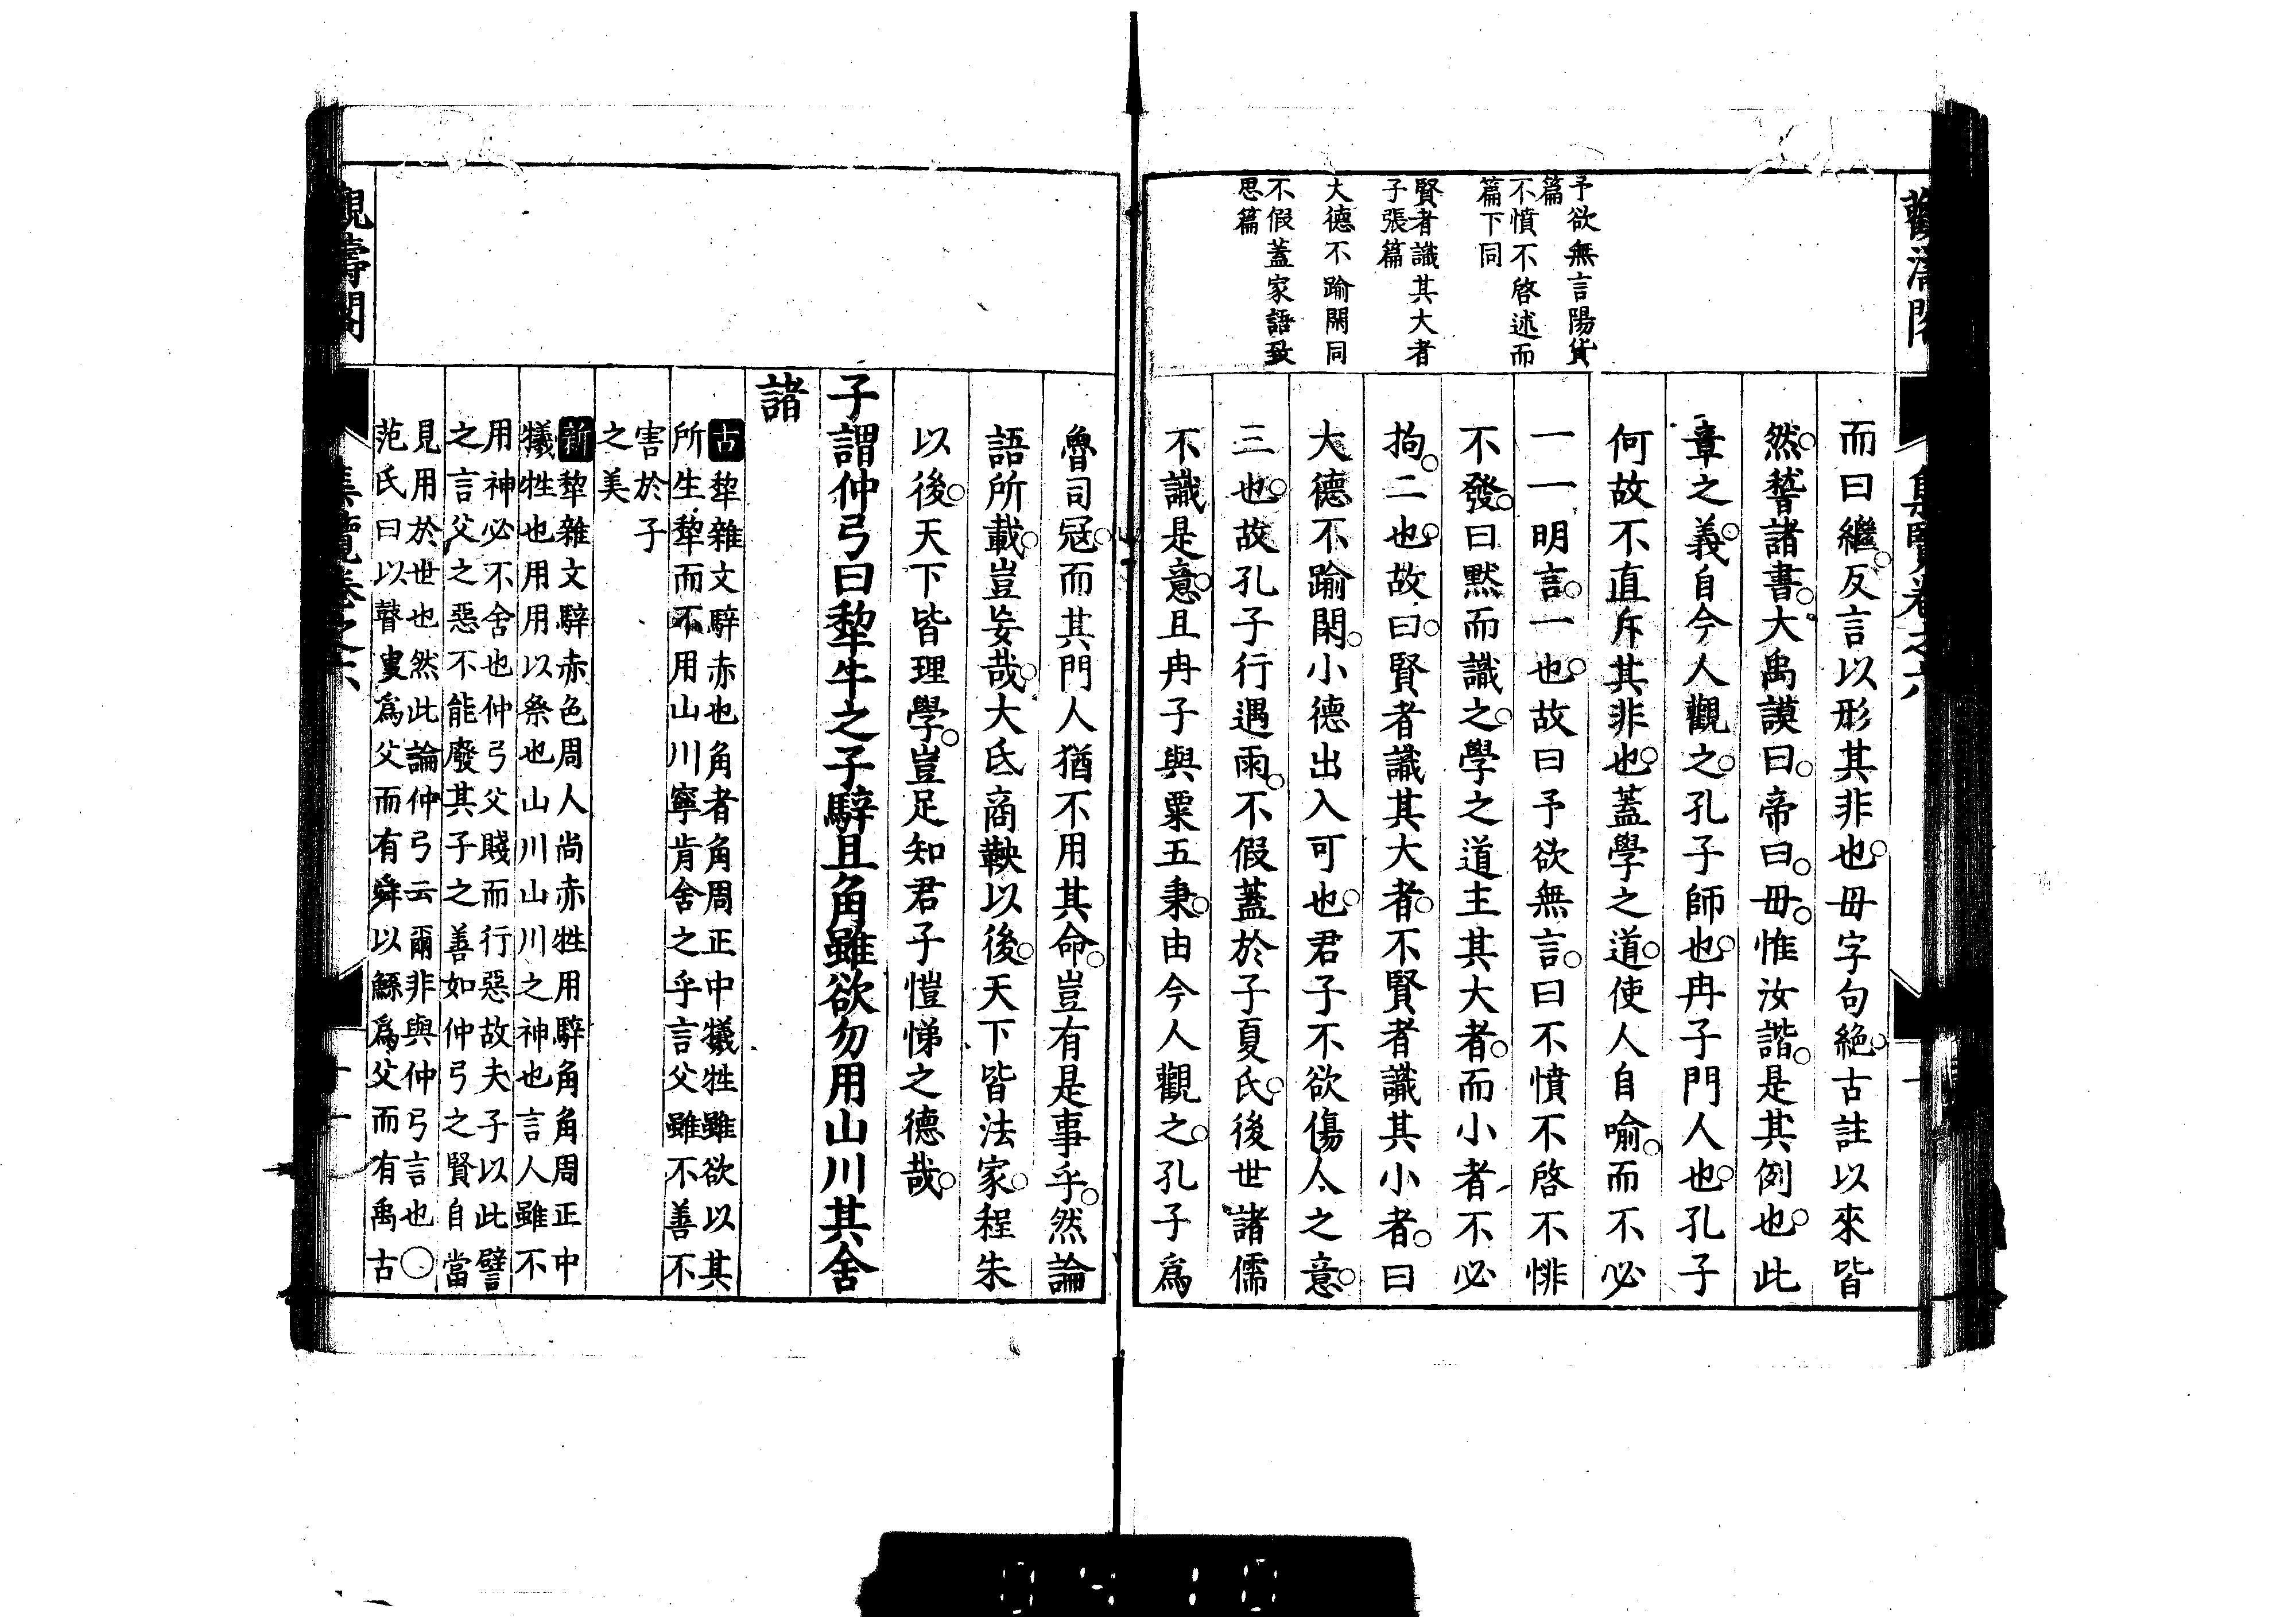 予欲無言陽貨
篇
不憤不啓述而
篇下同
賢者識其大者
子張篇
大德不踰閑同
不假蓋家語致
思篇
而曰繼。反言以形其非也。毋字句絶。古註以來皆
然。嵆諸書。大禹謨曰。帝曰。毋。惟汝諧。是其例也。此
章之義。自今人觀之。孔子師也。冉子門人也。孔子
何故不直斥其非也。蓋學之道。使人自喻。而不必
一一明言。一也。故曰予欲無言。曰不憤不啓不悱
不發。曰黙而識之。學之道主其大者。而小者不必
拘。二也。故曰。賢者識其大者。不賢者識其小者。曰
大德不踰閑。小德出入可也。君子不欲傷人之意。
三也。故孔子行遇雨。不假蓋於子夏氏。後世諸儒
不識是意。且冉子與粟五秉。由今人觀之。孔子爲
魯司冦。而其門人猶不用其命。豈有是事乎。然論
語所載。豈妄哉。大氐商鞅以後。天下皆法家。程朱
以後。天下皆理學。豈足知君子愷悌之德哉。
子謂仲弓曰犂牛之子騂且角雖欲勿用山川其舍
諸
古犂雜文騂赤也角者角周正中犧牲雖欲以其
所生犂而不用山川寧肯舍之乎言父雖不善不
害於子
之美
新犂雜文騂赤色周人尚赤牲用騂角角周正中
犧牲也用用以祭也山川山川之神也言人雖不
用神必不舍也仲弓父賤而行惡故夫子以此譬
之言父之惡不能廢其子之善如仲弓之賢自當
見用於世也然此論仲弓云爾非與仲弓言也○
范氏曰以瞽叟爲父而有舜以鯀爲父而有禹古